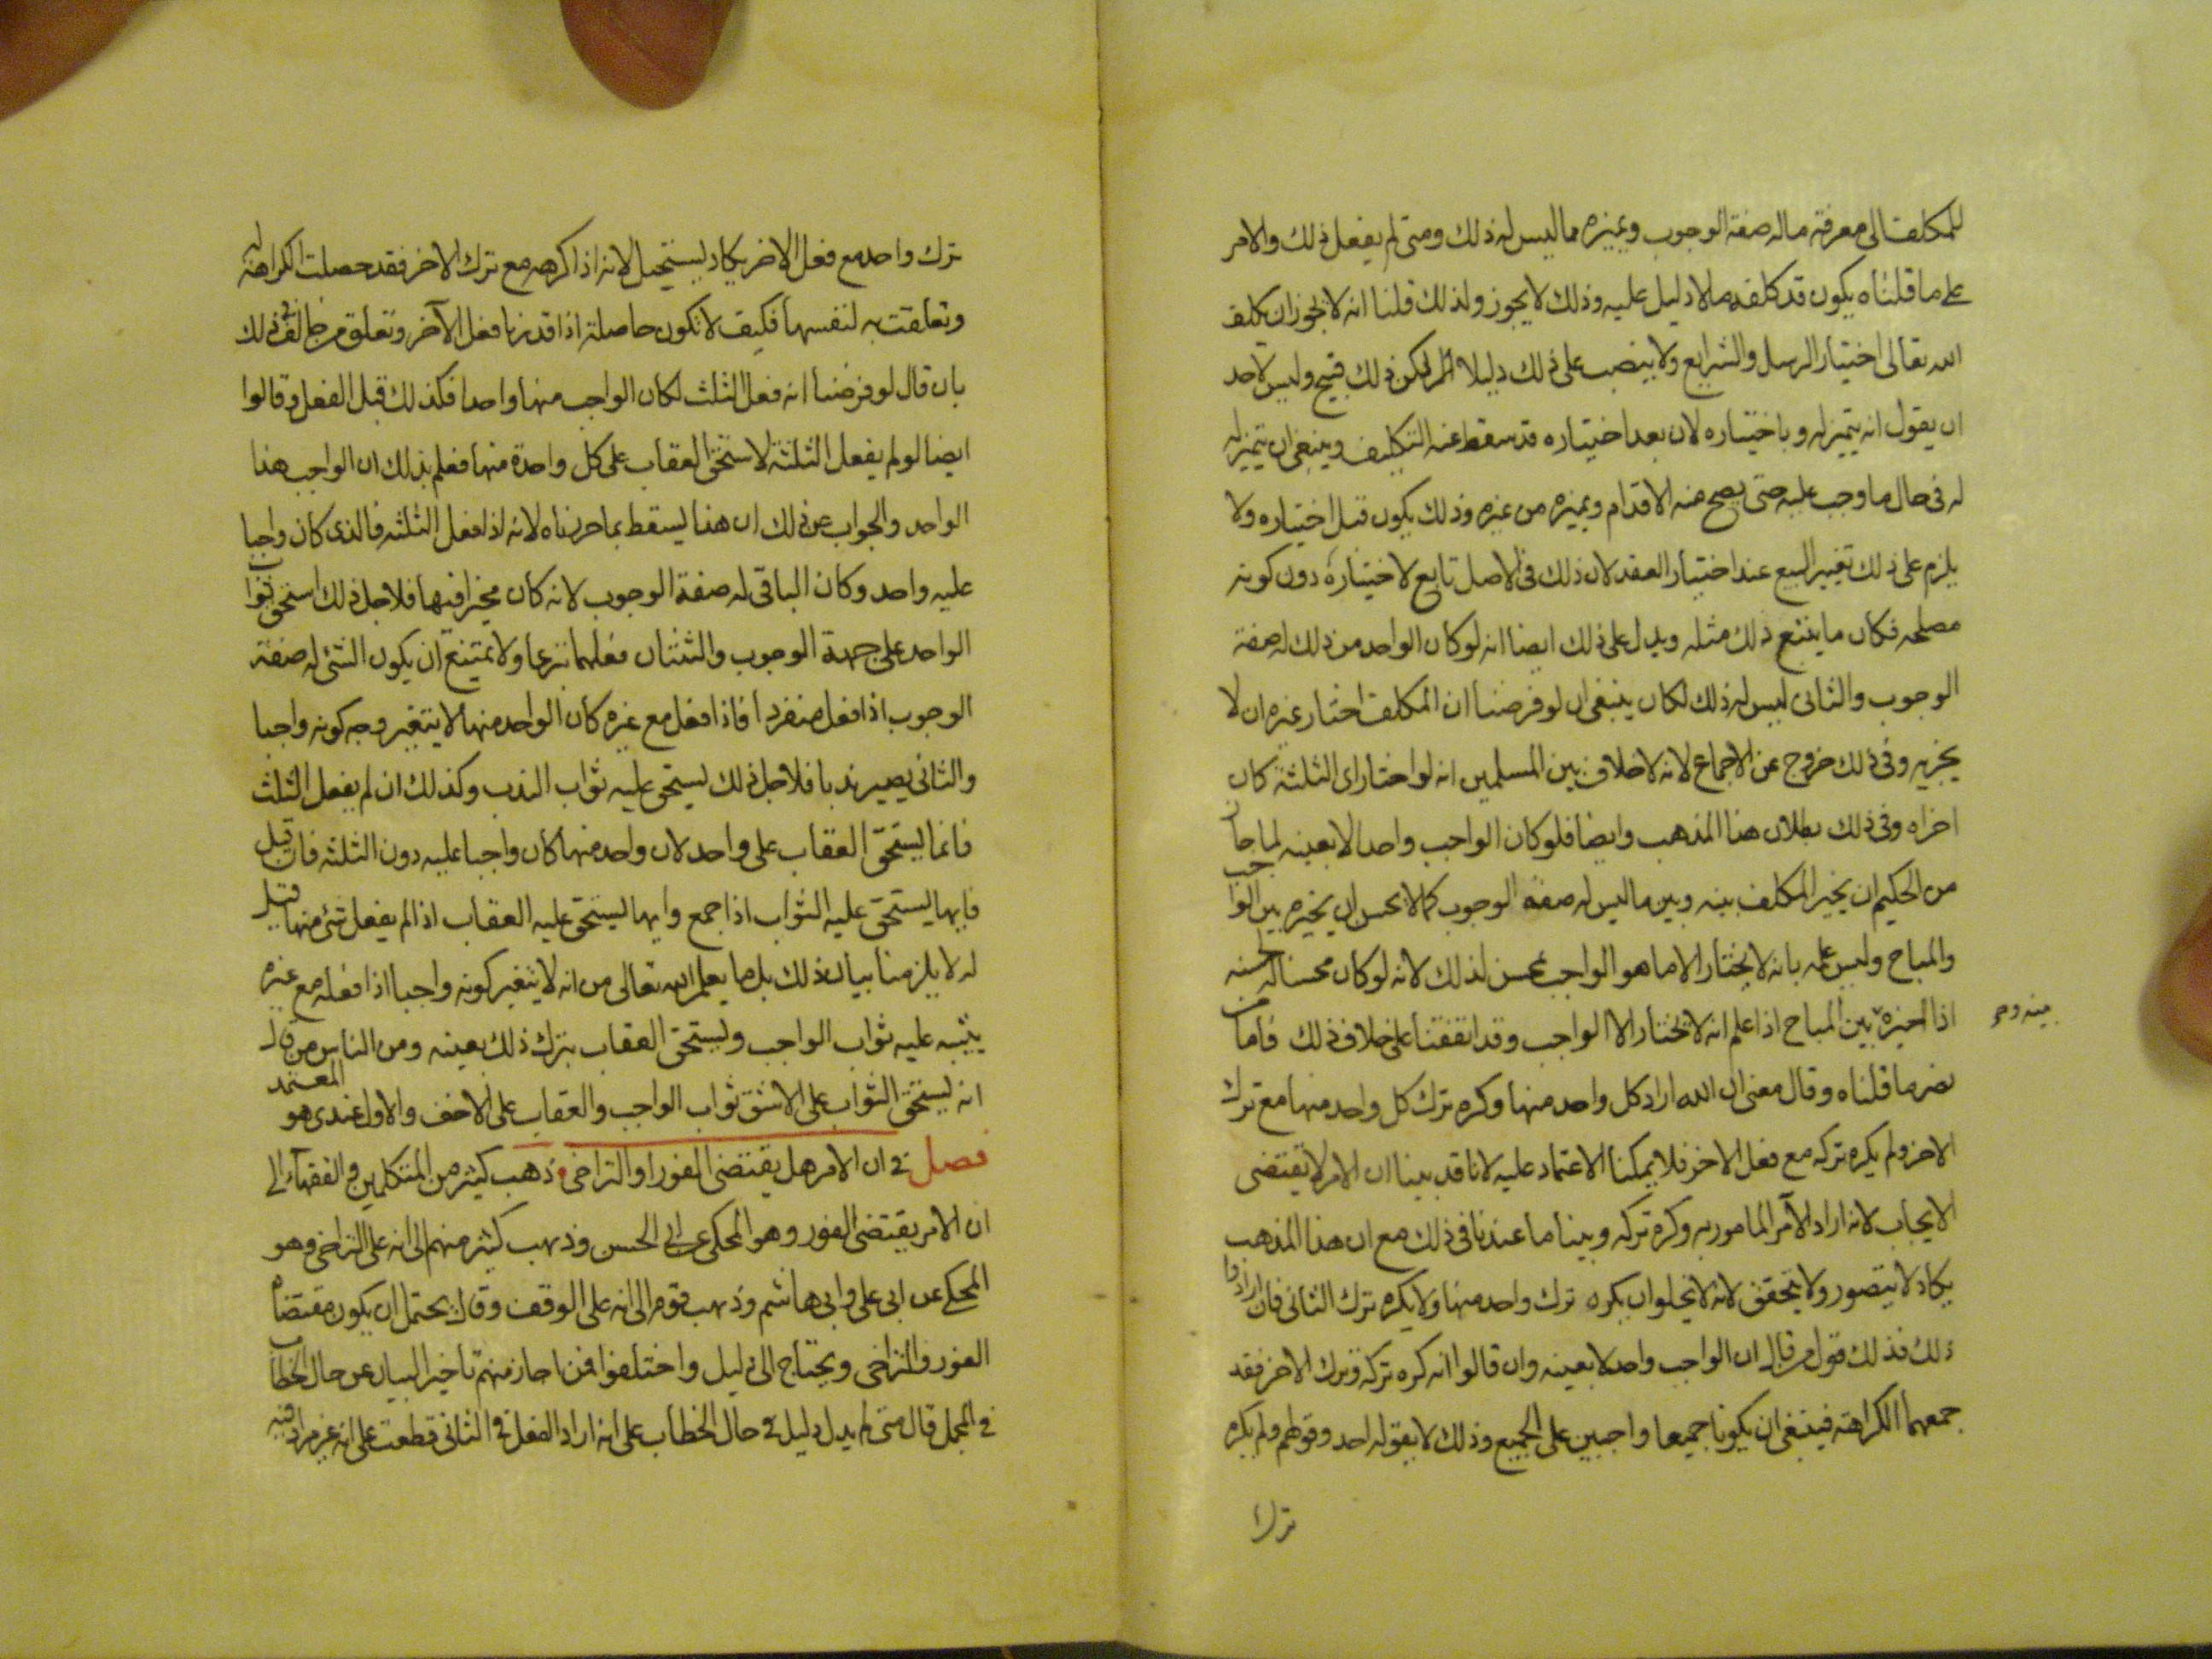 للمكلف الى معرفة ماله صفة الوجوب وبميزه مما ليس له ذلك ومتى لم يفعل ذلك والامر
على ما قلناه يكون قد كلفه ما لا دليل عليه وذلك لا يجوز ولذلك قلنا انه لا يجوز ان يكلف
الله تعالى اختيار الرسل والشرايع ولا ينصب على ذلك دليلا لكن ذلك قبيح وليس لاحد
ان يقول انه يتميز له و باختياره لان بعد اختياره قد سقط عنه التكليف وينبغى ان يتميز له
له فى حال ما وجب عليه حتى يصح منه الاقدام ويميزه من غيره وذلك يكون قبل اختياره ولا
يلزم على ذلك تغيير البيع عند اختيار العقد لان ذلك فى الاصل تابع لاختياره دون كونه
مصلحه فكان ما يتبع ذلك مثله ويدل على ذلك ايضا انه لو كان الواحد من ذلك له صفة
الوجوب والثانى ليس له ذلك لكان ينبغى ان لو فرضنا ان المكلف اختار غيره ان لا
يجزيه وفى ذلك خروج عن الاجماع لانه لا خلاف بين المسلمين انه لو اختار اى الثلثة كان
اجزاه وفى ذلك بطلان هذا المذهب وايضا فلو كان الواجب واحدا لا بعينه لما جاز
من الحكيم ان يخير المكلف بينه وبين ما ليس له صفة الوجوب كما لا يحسن ان يخيره بين الواجب
والمباح وليس علمه بانه لا يختار الا ما هو الواجب محسن لذلك لانه لو كان محسنا له لحسنه
اذا الخيره بين المباح اذا علم انه لا يختار الا الواجب وقد اتفقنا على خلاف ذلك فاما من
بينه و
نصر ما قلناه وقال معنى ان الله اراد كل واحد منها وكره ترك كل واحد منها مع ترك
الاخر ولم يكره تركه مع فعل الاخر فلا يمكننا الاعتماد عليه لانا قد بينا ان الامر لا يقتضى
الايجاب لانه اراد الآمر المامور به وكره تركه وبينا ما عندنا فى ذلك مع ان هذا المذهب
يكاد لا يتصور ولا يتحقق لانه لا يخلو ان يكره ترك واحد منها ولا يكره ترك الثانى فان ارادوا
ذلك فذلك قول من قال ان الواجب واحد لا بعينه وان قالوا انه كره تركه وترك الاخر فقد
جمعهما الكراهة فينبغى ان يكونا جميعا واجبين على الجميع وذلك لا يقوله احد وقولهم ولم يكره
ترك
ترك واحد مع فعل الاخر يكاد يستحيل لانه اذا كرهه مع ترك الاخر فقد حصلت الكراهة له
وتعلقت به لنفسها فكيف لا تكون حاصلة اذا قدرنا فعل الآخر وتعلق من خالف فى ذلك
بان قال لو فرضنا انه فعل الثلث لكان الواجب منها واحدا فكذلك قبل الفعل وقالوا
ايضا لو لم يفعل الثلثة لاستحق العقاب على كل واحدة منها فعلم بذلك ان الواجب هذا
الواحد والجواب عن ذلك ان هذا يسقط بما حررناه لانه اذا فعل الثلثه فالذى كان واجبا
عليه واحد وكان الباقى له صفة الوجوب لانه كان مخيرا فيها فلاجل ذلك استحق ثواب
الواحد على جهة الوجوب والثنتان فعلهما تبرعا ولا يمتنع ان يكون الشئ له صفة
الوجوب اذا فعل منفردا فاذا فعل مع غيره كان الواحد منها لا يتغير وجه كونه واجبا
والثانى يصير ندبا فلاجل ذلك يستحق عليه ثواب الندب وكذلك ان لم يفعل الثلث
فانما يستحق العقاب على واحد لان واحد منها كان واجبا عليه دون الثلثه فان قيل
فايها يستحق عليه الثواب اذا جمع وايها يستحق عليه العقاب اذا لم يفعل شئ منها قيل
له لا يلزمنا بيان ذلك بل ما يعلم الله تعالى من انه لا يتغير كونه واجبا اذا فعله مع غيره
يثيبه عليه ثواب الواجب ويستحق العقاب بترك ذلك بعينه ومن الناس من قال
انه يستحق الثواب على الاشق ثواب الواجب والعقاب على الاخف والاول عندى هو المعتمد
فصل فى ان الامر هل يقتضى الفور او التراخى ذهب كثير من المتكلمين والفقهاء الى
ان الامر يقتضى الفور وهو المحكى عن ابى الحسن وذهب كثير منهم الى انه على التراخى وهو
المحكى عن ابى على وابى هاشم وذهب قوم الى انه على الوقف وقال يحتمل ان يكون مقتضاه
الفور والتراخى ويحتاج الى دليل واختلفوا فمن اجاز منهم تاخير البيان عن حال الخطاب
فى المجمل قال متى لم يدل دليل فى حال الخطاب على انه اراد الفعل فى الثانى قطعت على انه غير مراد فيه